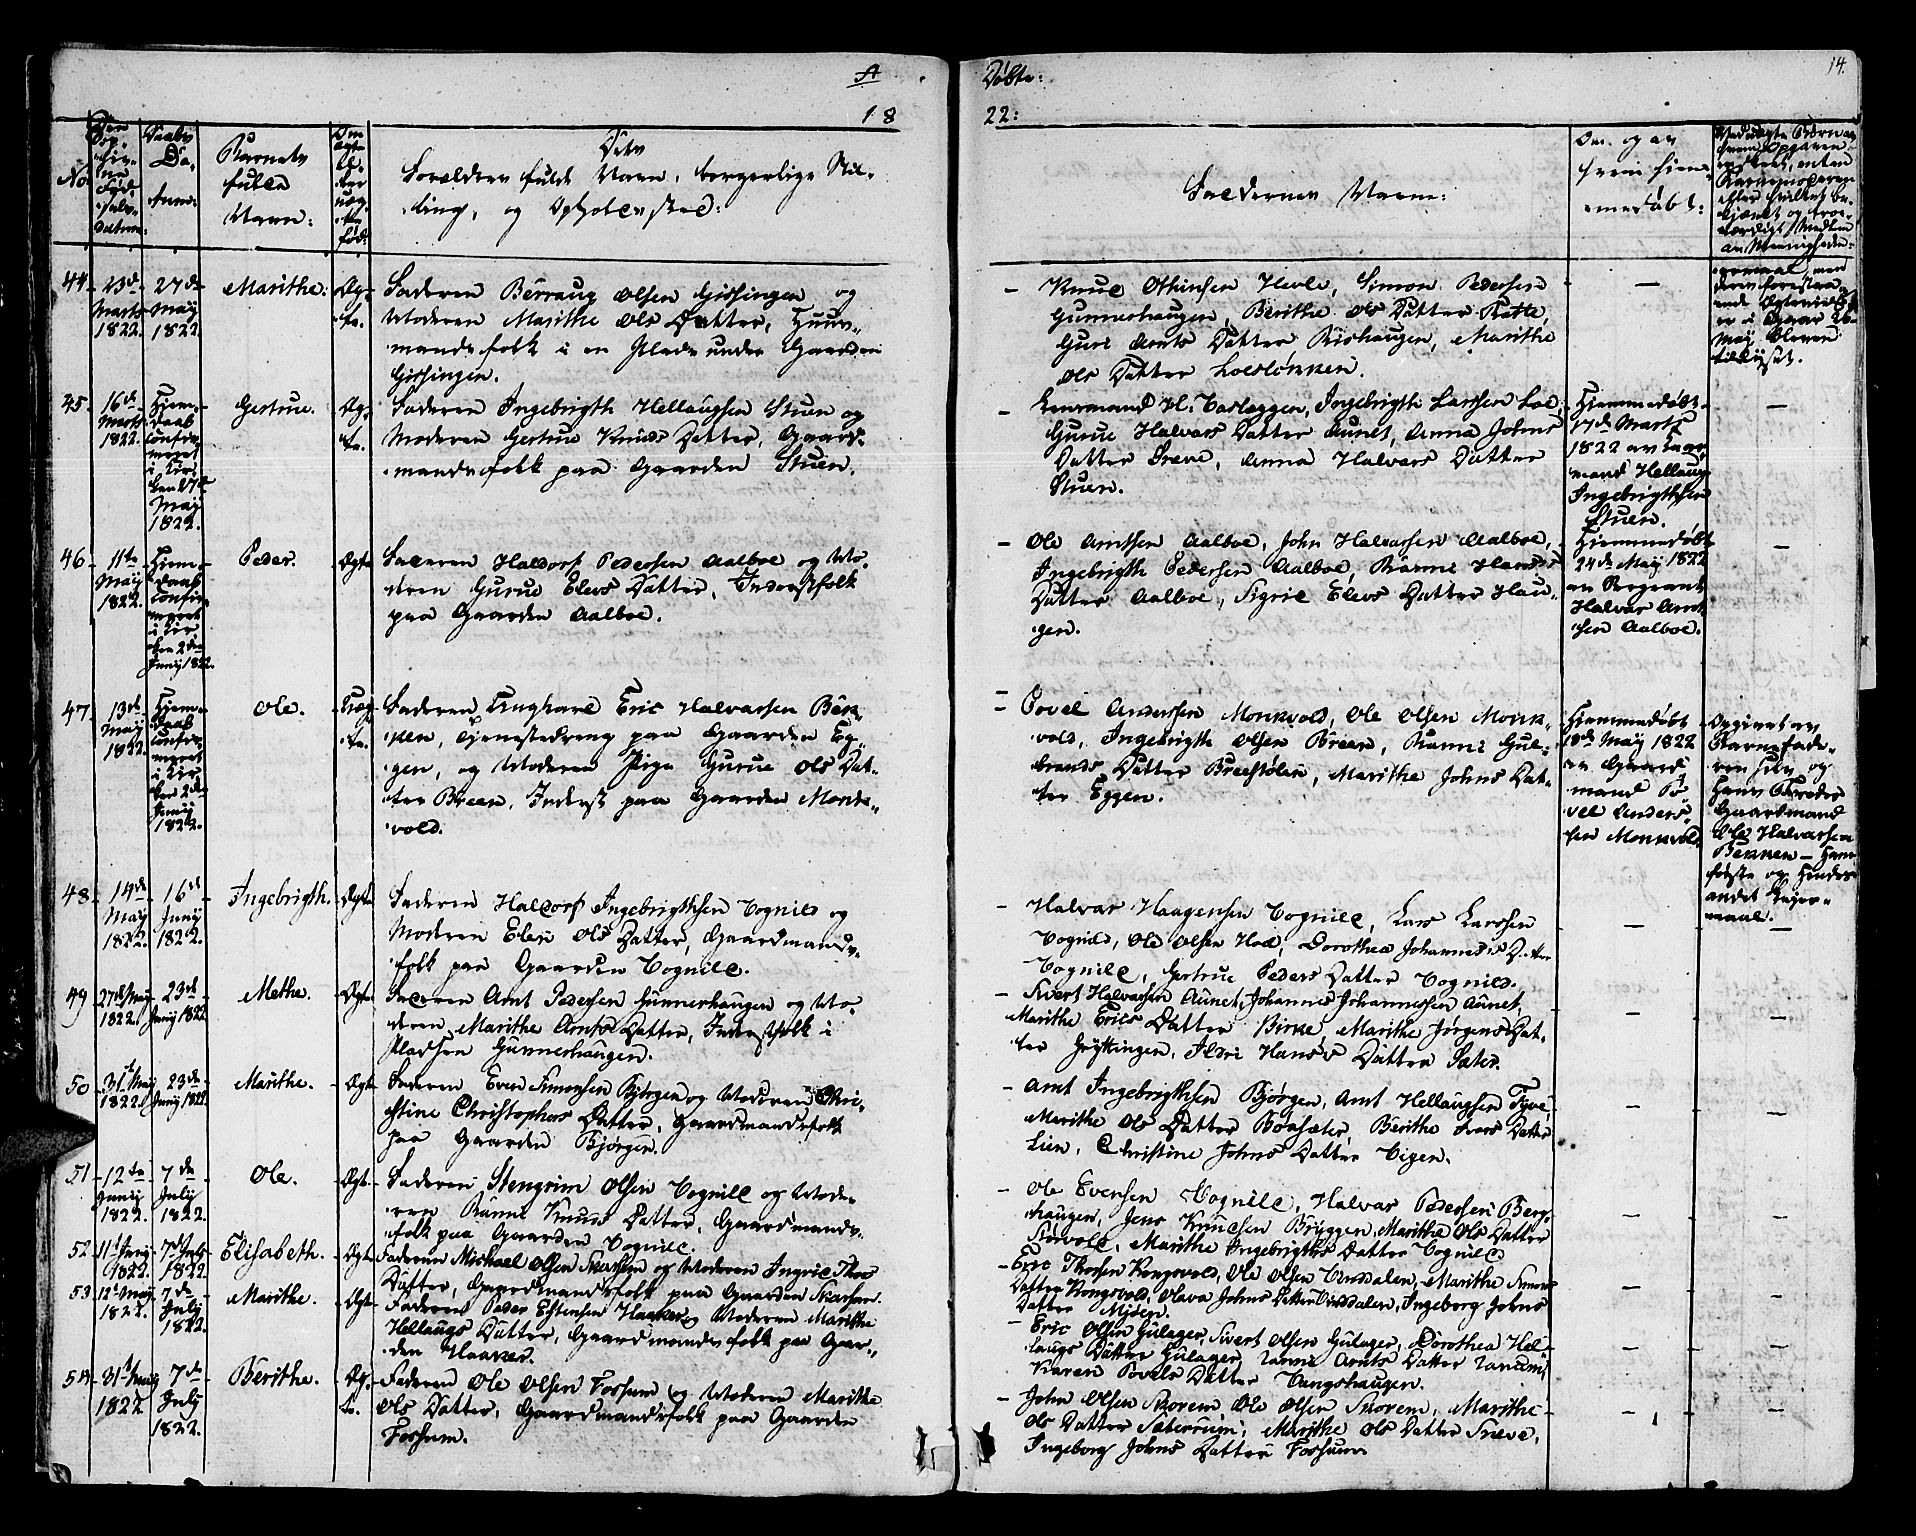 A
Døbte:
14.
18
22:
No
Daabs
Da-
tum:
Barnets
fulde
Navn:
Dets
Forældres fulde Navn, borgerlige Stil-
ling, og Opholdssted:
Faddernes Navne:
Om og av
hvem hiem-
medøbt:
44.
23de
Marts
1822.
27de
Maÿ
1822.
Marithe.
Æg-
te.
Faderen Berraug Olsen Gissingen og
Moderen Marithe Ols Datter, Huus-
mandsfolk i en Plads under Gaarden
Gissingen.
Knud Othinsen Hevle, Simon Pedersen
Gunnerhaugen, Berithe Ols Datter Katle,
Guri Arnts Datter Riishaugen, Marithe
Ols Datter Loeslønken.
45.
16de
Marts
1822.
Hiem-
daab
confir-
meret
i Kir-
ken 27de
Maÿ
1822.
Gertrue.
Æg-
te.
Faderen Ingebrigth Hellaugsen Stuen og
Moderen Gertrue Knuds Datter, Gaard-
mandsfolk paa Gaarden Stuen.
Ingebrigth Larssen Loe,
Gurue Halvars Datter Aunet, Anna Johns
Datter Sneve, Anna Halvars Datter
Stuen.
Hiemmedøbt
17de Marts
1822 av Gaard-
mand Hellaug
Ingebrigthsen
Stuen.
46.
11te
Maÿ
1822.
Hiem-
daab
confir-
meret
i Kir-
ken 2den
Junÿ 1822.
Peder.
Ægte
Faderen Haldors Pedersen Aalboe og Mo-
deren Gurue Elevs Datter, Inderstfolk
paa Gaarden Aalboe.
Ole Arntsen Aalboe, John Halvarsen Aalboe,
Ingebrigth Pedersen Aalboe, Ranni Hans
Datter Aalboe, Sigrie Elevs Datter Hau-
gen.
Hiemmedøbt
24de Maÿ 1822
av Sergeant
Halvar Arnt-
sen Aalboe.
47.
13de
Maÿ
1822.
Hiem-
daab
confir-
meret
i Kir-
ken 2den
Junÿ
1822.
Ole.
Uæg-
te.
Faderen Ungkarl Eric Halvarsen Bek-
ken, Tjenestedreng paa Gaarden Eg-
gen, og Moderen Pige Gurue Ols Dat-
ter Breen, Inderst paa Gaarden Monk-
vold.
Povel Anderssen Monkvold, Ole Olsen Monk-
vold, Ingebrigth Olsen Breen, Ranni Gul-
brands Datter Breestølen, Marithe Johns Dat-
ter Eggen.
Hiemmedøbt
18de Maÿ 1822
av Gaard-
mand Po-
vel Anders-
sen Monkvold.
Opgivet av
Barnefade-
ren selv, og
Hans Broder
Gaardmand
Ole Halvarsen
Bekken – Hans
første og Hendes
andet Leier-
maal.
48.
14de
Maÿ
1822.
16de
Junÿ
1822.
Ingebrigth.
Ægte
Faderen Haldors Ingebrigthsen Vognild og
Moderen Elen Ols Datter, Gaardmands-
folk paa Gaarden Vognild.
Halvar Haagensen Vognild, Lars Larssen
Vognild, Ole Olsen Hoel, Dorothea Johannes Datter
Vognild, Gertrue Peders Datter Vognild.
49
27de Maÿ
1822.
23de
Junÿ 1822
Methe.
Ægte
Faderen Arnt Pedersen Gunnerhaugen og Mo-
deren Marithe Arnts Datter, Inderstfolk i
Pladsen Gunnerhaugen.
Sivert Halvarsen Aunet, Johannes Johannessen Aunet,
Marithe Erics Datter Birke, Marithe Jørgens Dat-
ter Grÿttingen, Ildri Hans Datter Sæter.
50.
31te Maÿ
1822.
23de
Junÿ 1822.
Marithe.
Ægte
Faderen Even Simonsen Bjørgen og Moderen Chri-
stine Christophers Datter, Gaardmandsfolk
paa Gaarden Bjørgen.
Arnt Ingebrigthsen Bjørgen, Arnt Hellaugsen Tyve,
Marithe Ols Datter Boesæter, Berithe Ivers Datter
Lien, Christine Johns Datter Vigen.
51.
12te
Junÿ
1822.
7de
Julÿ
1822.
Ole.
Ægte
Faderen Stengrim Olsen Vognild og Mode-
ren Ranni Knuds Datter, Gaardmands-
folk paa Gaarden Vognild.
Ole Evensen Vognild, Halvar Pedersen Berg-
haugen, Jens Knudsen Brÿggen, Marithe Ols Datter
Norvold, Marithe Ingebrigths Datter Vognild.
52.
11te Junÿ
1822.
7de Julÿ
1822.
Elisabeth.
Ægte
Faderen Michael Olsen Skarsem og Moderen Ingrie Thors
Datter, Gaardmandsfolk paa Gaarden Skarsem.
Eric Thorsen Kongsvold, Ole Olsen Vinsdalen, Marithe Simons
Datter Kongsvold, Olava Johns Datter Vinsdalen, Ingeborg Johns
Datter Mjøen.
53.
12te Maÿ
1822.
7de
Julÿ
1822.
Marithe.
Ægte
Faderen Peder Estensen Haaker og Moderen Marithe
Hellaugs Datter, Gaardmandsfolk paa Gaar-
den Haaker.
Eric Olsen Gulager, Sivert Olsen Gulager, Dorothea Hel-
laugs Datter Gulager, Ranni Arnts Datter
Karen Povels Datter Vangshaugen.
54.
31te
1822
7de
Julÿ
1822.
Berithe.
Æg-
te.
Faderen Ole Olsen Forsem og Moderen Marithe
Ols Datter, Gaardmandsfolk paa Gaarden
Forsem.
John Olsen Skorem, Ole Olsen Skorem, Marithe
Ols Datter Sæterrum, Marithe Ols Datter Sneve,
Ingeborg Johns Datter Forsem.